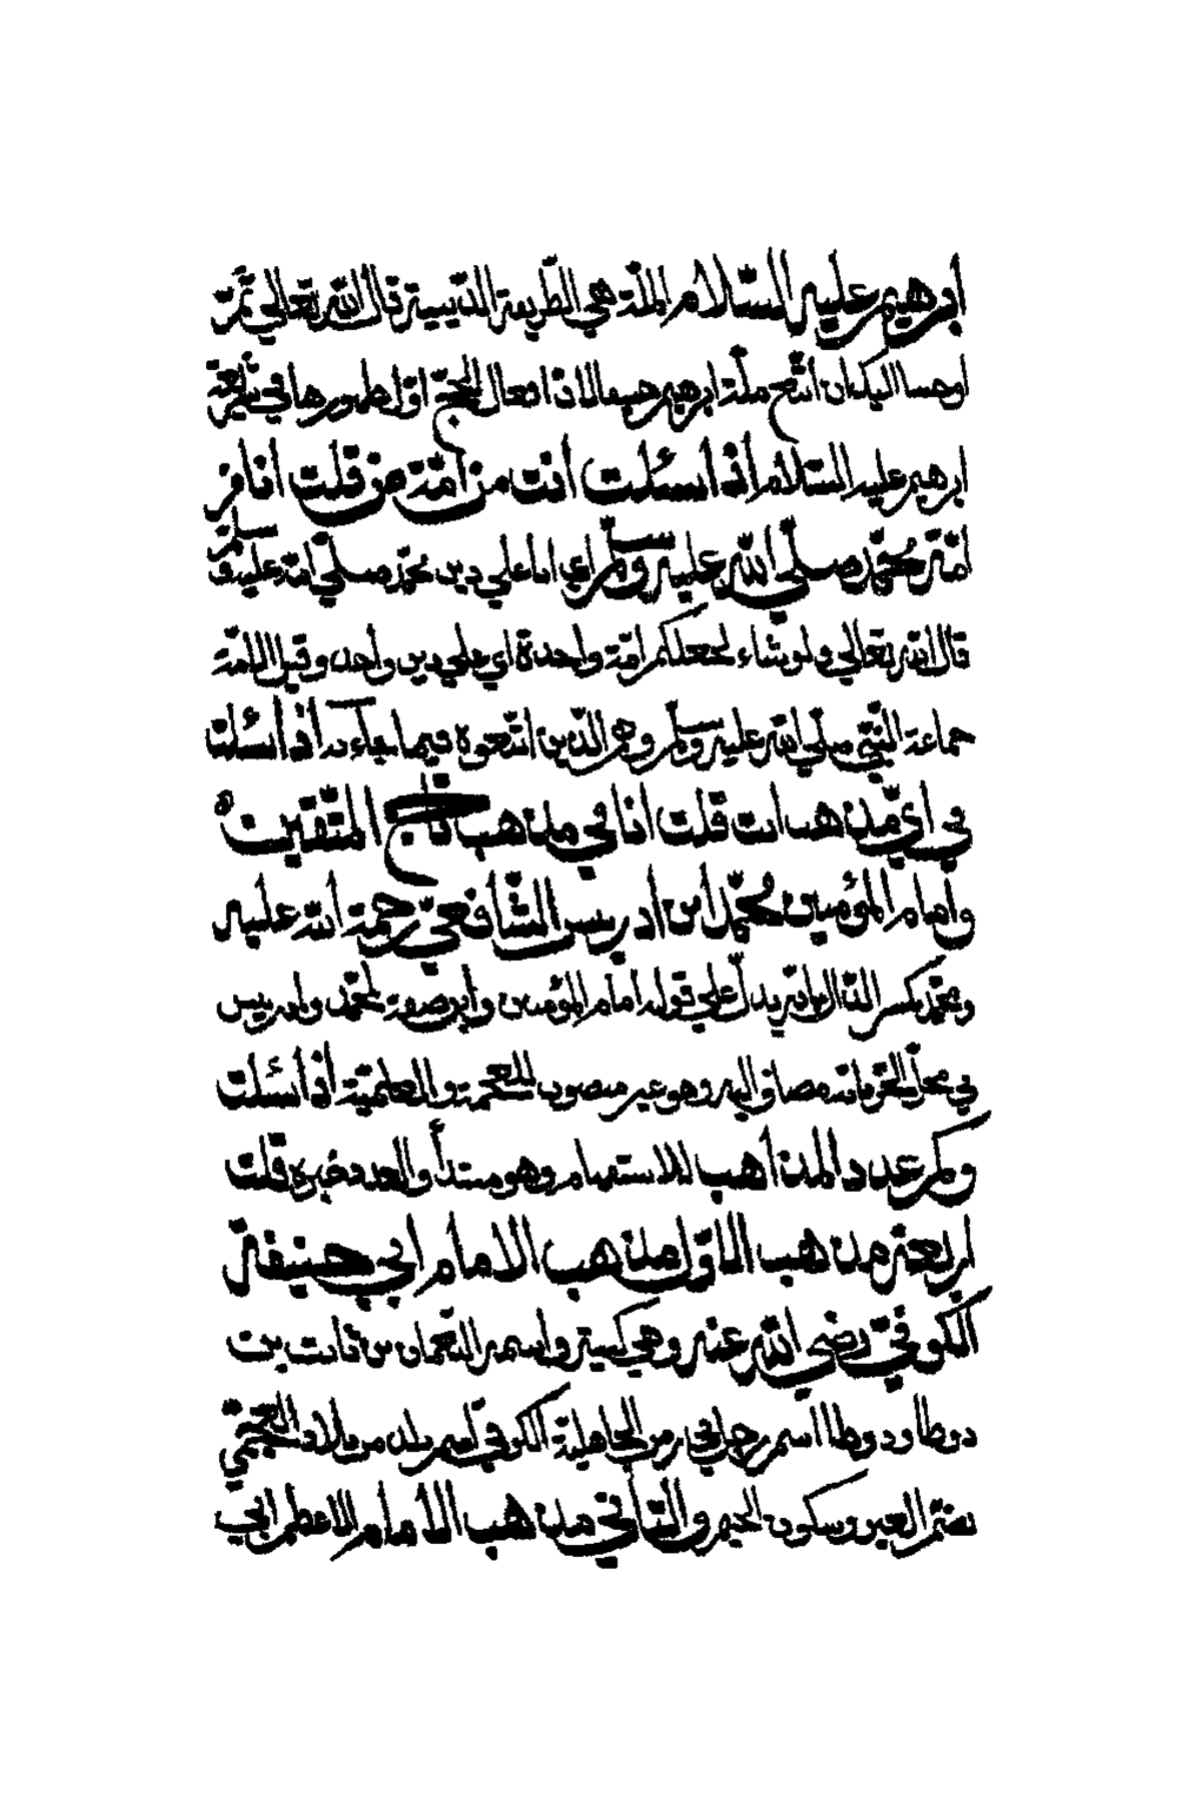 ابرهيم عليه السّلام الملّة هي الطّريقة الدّينية قال الله تعالى ثمّ
اوحينا اليك ان اتّبع ملّة ابرهيم حنيفا لانّ افعال الحجّ اوّل ظهورها في شريعة
ابرهيم عليه السّلام أذ أسئلت أنت من أمّة من قلت أنا من
أمّة محمّد صلّى الله عليه وسلّم اي انا على دين محمّد صلّى الله عليه وسلّم
قال الله تعالى ولو شاء لجعلكم امّة واحدة اي على دين واحد وقيل الامّة
جماعة النّبيّ صلّى الله عليه وسلّم وهم الّذين اتّبعوه فيما جاء به أذ أسئلت
في أيّ مذهب انت قلت انا في مذهب تاج المتّقين
وأمام المؤمنين محمّد ابن أدريس الشّافعيّ رحمة الله عليه
ومحمّد بكسر الدّال يدلّ على قوله امام المؤمنين وأبن صفة لمحمّد وادريس
في محلّ الجرّ مضاف اليه وهو غير منصوب للعجمة والعلميّة أذ أسئلت
وكم عدد المذاهب للاستفهام وهو مبتدأ والعدد خبره قلت
اربعة مذهب الاوّل مذهب الامام ابي حنيفة
الكوفيّ رضي الله عنه وهي كنيته واسمه النّعمان بن ثابت بن
دوطا ودوطا اسم رجل من الجاهليّة الكوفيّ اسم بلد من بلاد العجميّ
بضمّ العين وسكون الجيم والثّاني مذهب الأمام الاعظم ابي